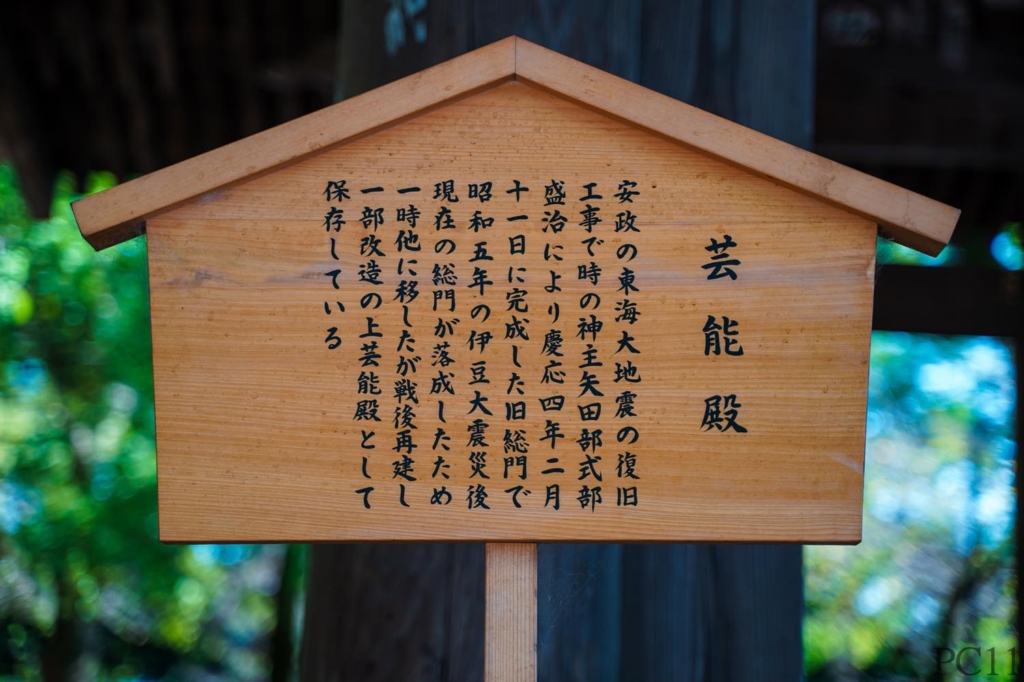 芸能殿
安政の東海大地震の復旧
工事で時の神主矢田部式部
盛治により慶応四年二月
十一日に完成した旧総門で
昭和五年の伊豆大震災後
現在の総門が落成したため
一時他に移したが戦後再建し
一部改造の上芸能殿として
保存している
PC11